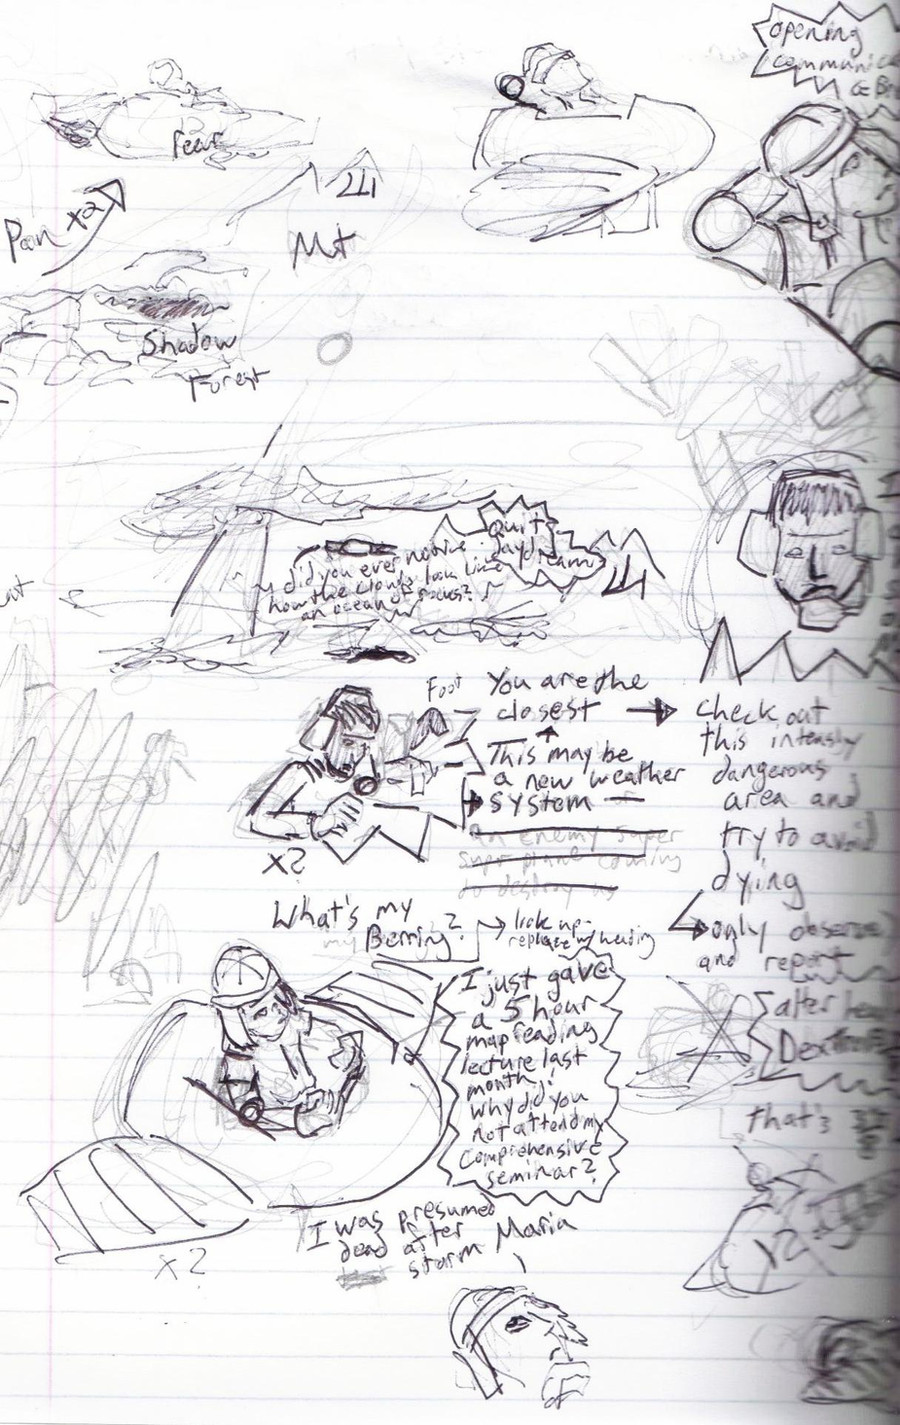 opening
Fear
Pan x2
Mt
Shadow
Forest
Quit
did you ever notice
how the clouds look like
an ocean of
Foot
You are the
closest
This may be
a new weather
system
an enemy super
super plane coming
to destroy us
check out
this intensly
dangerous
area and
try to avoid
dying
only observe
and report
x?
What's my
my Berring?
look up-
replace w/ heading
I just gave
a 5 hour
map reading
lecture last
month!
why did you
not attend my
comprehensive
seminar?
that's
x2
x?
I was presumed
dead after
storm Maria